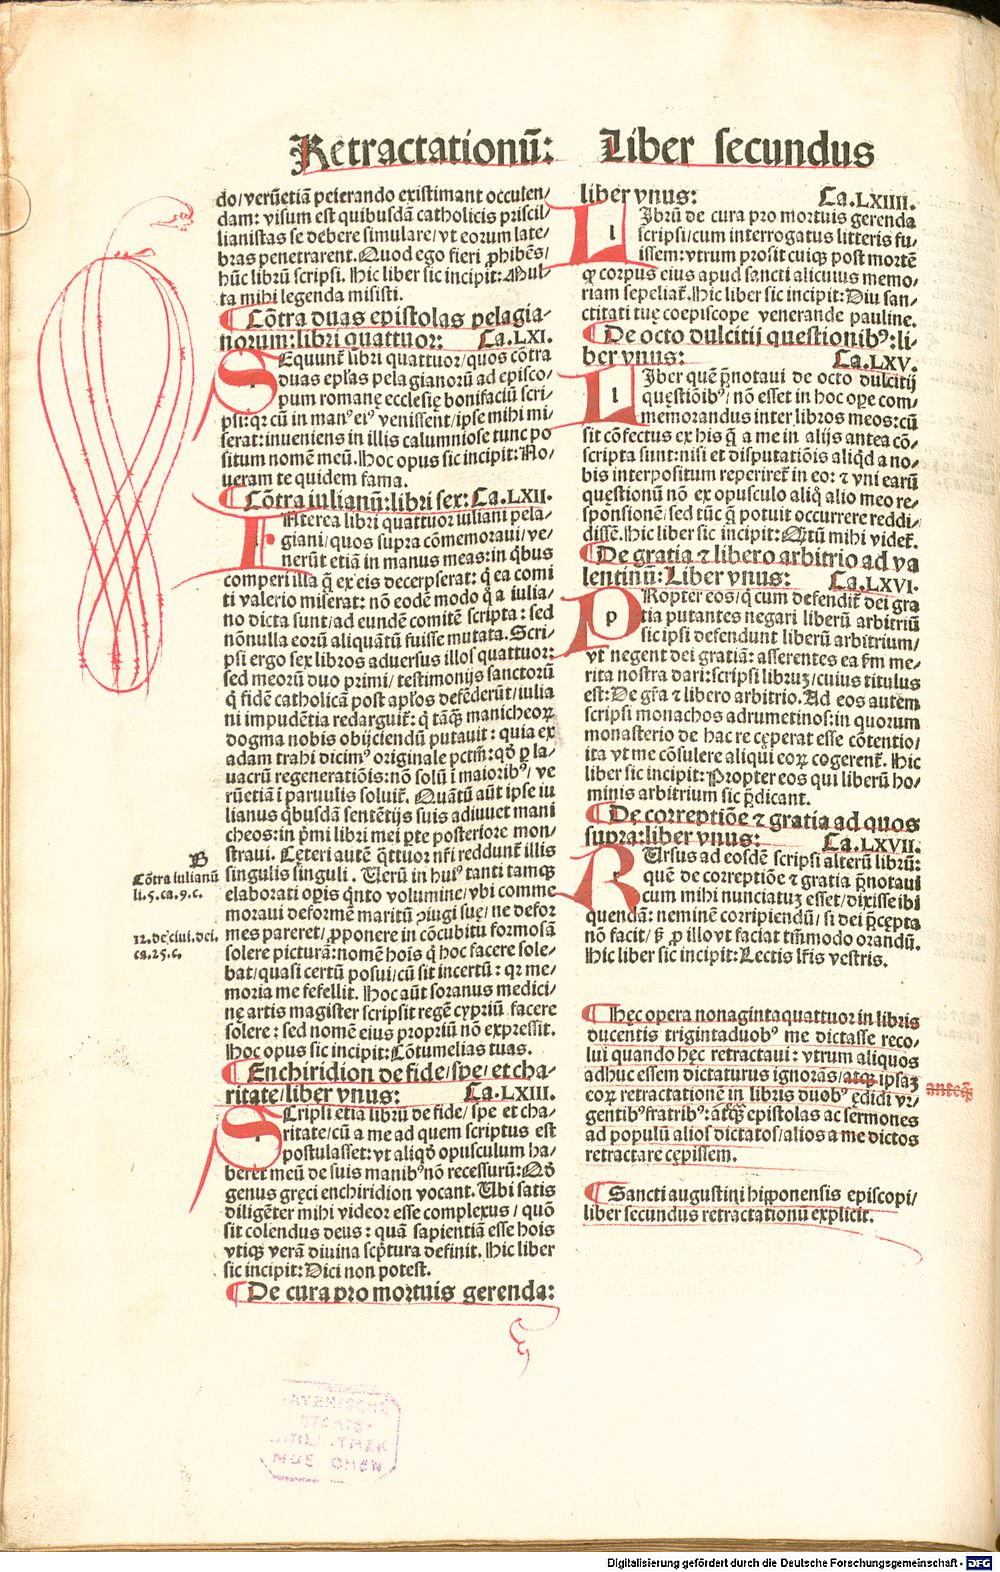 Retractationū: Liber secundus
do/verūetiā peierando existimant occulen/
dam: visum est quibusdā catholicis priscil/
lianistas se debere simulare/vt eorum late/
bras penetrarent. Quod ego fieri ꝓhibēs/
hūc librū scripsi. Hic liber sic incipit: Mul/
ta mihi legenda misisti.
¶ Cōtra duas epistolas pelagia-
norum: libri quattuor: Ca.LXI.
SEquunt̄ libri quattuor/quos cōtra
duas epl̄as pelagianorū ad episco/
pum romanę ecclesię bonifaciū scri/
psi: qꝛ cū in manꝰ eiꝰ venissent/ipse mihi mi
serat: inueniens in illis calumniose tunc po
situm nomē meū. Hoc opus sic incipit: No/
ueram te quidem fama.
¶ Cōtra iulianū: libri sex: Ca.LXII.
INterea libri quattuor iuliani pela/
giani/quos supra cōmemoraui/ve/
nerūt etiā in manus meas: in q̄bus
comperi illa q̄ ex eis decerpserat: q̄ ea comi
ti valerio miserat: nō eodē modo q̄ a iulia/
no dicta sunt/ad eundē comitē scripta: sed
nōnulla eorū aliquātū fuisse mutata. Scri/
psi ergo sex libros aduersus illos quattuor:
sed meorū duo primi/testimonijs sanctorū
q̄ fidē catholicā post apl̄os defēderūt/iulia
ni impudētia redarguit̄: q̄ tāqꝫ manicheoꝝ
dogma nobis obijciendū putauit: quia ex
adam trahi dicimꝰ originale pctm̄: qd̄ ꝑ la/
uacrū regeneratiōis: nō solū ī maioribꝰ/ve
rūetiā ī paruulis soluit̄. Quātū aūt ipse iu
lianus q̄busdā sentētijs suis adiuuet mani
cheos: in p̄mi libri mei ꝑte posteriore mon/
straui. Cęteri autē q̄ttuor nr̄i reddunt̄ illis
singulis singuli. Verū in huiꝰ tanti tamqꝫ
elaborati oꝑis q̄nto volumine/vbi comme
moraui deformē maritū ꝯiugi suę/ne defor
mes pareret/ꝓponere in cōcubitu formosā
solere picturā: nomē hoīs q̄ hoc facere sole/
bat/quasi certū posui/cū sit incertū: qꝛ me/
moria me fefellit. Hoc aūt soranus medici/
nę artis magister scripsit regē cypriū facere
solere: sed nomē eius propriū nō expressit.
Hoc opus sic incipit: Cōtumelias tuas.
¶ Enchiridion de fide/spe/et cha-
ritate/liber vnus: Ca.LXIII.
SCripsi etiā librū de fide/spe et cha/
ritate/cū a me ad quem scriptus est
postulasset: vt aliqd̄ opusculum ha/
beret meū de suis manibꝰ nō recessurū: Qd̄
genus gręci enchiridion vocant. Vbi satis
diligēter mihi videor esse complexus/quō
sit colendus deus: quā sapientiā esse hoīs
vtiqꝫ verā diuina scp̄tura definit. Hic liber
sic incipit: Dici non potest.
¶ De cura pro mortuis gerenda:
B
Cōtra iulianū
li.5.ca.9.c.
12.de ciui.dei.
ca.25.c.
liber vnus: Ca.LXIIII.
LIbrū de cura pro mortuis gerenda
scripsi/cum interrogatus litteris fu/
issem: vtrum prosit cuiqꝫ post mortē
qꝙ corpus eius apud sancti alicuius memo/
riam sepeliat̄. Hic liber sic incipit: Diu san/
ctitati tuę coepiscope venerande pauline.
¶ De octo dulcitij questionibꝰ: li-
ber vnus: Ca.LXV.
LIber quē p̄notaui de octo dulcitij
quęstiōibꝰ/nō esset in hoc oꝑe com/
memorandus inter libros meos: cū
sit cōfectus ex his q̄ a me in alijs antea cō/
scripta sunt: nisi et disputatiōis aliqd̄ a no/
bis interpositum reperiret̄ in eo: ⁊ vni earū
questionū nō ex opusculo aliq̄ alio meo re/
spōnsionē/sed tūc q̄ potuit occurrere reddi/
dissē. Hic liber sic incipit: Q̄tū mihi videt̄.
¶ De gratia ⁊ libero arbitrio ad va
lentinū: Liber vnus: Ca.LXVI.
PRopter eos/q̄ cum defendit̄ dei gra
tia putantes negari liberū arbitriū
sic ipsi defendunt liberū arbitrium/
vt negent dei gratiā: asserentes ea fm̄ me/
rita nostra dari: scripsi librū/cuius titulus
est: De gr̄a ⁊ libero arbitrio. Ad eos autem
scripsi monachos adrumetinos: in quorum
monasterio de hac re cęperat esse cōtentio/
ita vt me cōsulere aliqui eoꝝ cogerent̄. Hic
liber sic incipit: Propter eos qui liberū ho/
minis arbitrium sic p̄dicant.
¶ De correptiōe ⁊ gratia ad quos
supra: liber vnus: Ca.LXVII.
RVrsus ad eosdē scripsi alterū librū:
quē de correptiōe ⁊ gratia p̄notaui
cum mihi nunciatuꝫ esset/dixisse ibi
quendā: neminē corripiendū/si dei p̄cępta
nō facit/sꝫ ꝓ illo vt faciat tm̄modo orandū.
Hic liber sic incipit: Lectis lr̄is vestris.
¶ Hęc opera nonagintaquattuor in libris
ducentis trigintaduobꝰ me dictasse reco/
lui quando hęc retractaui: vtrum aliquos
adhuc essem dictaturus ignorās/atqꝫ ipsaꝫ
eoꝝ retractationē in libris duobꝰ ędidi vr/
gentibꝰ fratribꝰ: āteq̄ꝫ epistolas ac sermones
ad populū alios dictatos/alios a me dictos
retractare cępissem.
anteq̄ꝫ
¶ Sancti augustini hipponensis episcopi/
liber secundus retractationū explicit.
BAYERISCHE
STAATS-
BIBLIOTHEK
MUENCHEN
Digitalisierung gefördert durch die Deutsche Forschungsgemeinschaft - DFG